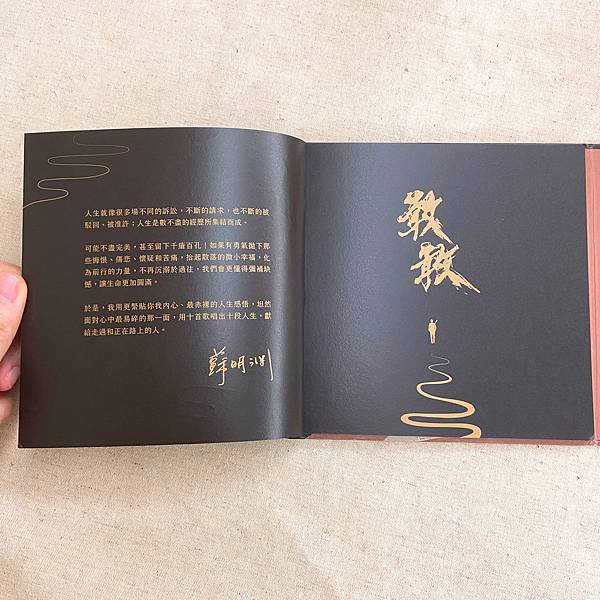 人生就像很多場不同的訴訟，不斷的請求，也不斷的被
駁回、被准許；人生是數不盡的經歷所集結而成。
可能不盡完美，甚至留下千瘡百孔！如果有勇氣拋下那
些悔恨、傷悲、懷疑和苦痛，拾起散落的微小幸福，化
為前行的力量，不再沉溺於過往，我們會更懂得彌補缺
憾，讓生命更加圓滿。
於是，我用更緊貼你我內心、最赤裸的人生感悟，坦然
面對心中最易碎的那一面，用十首歌唱出十段人生，獻
給走過和正在路上的人。
蘇明淵
敢敢